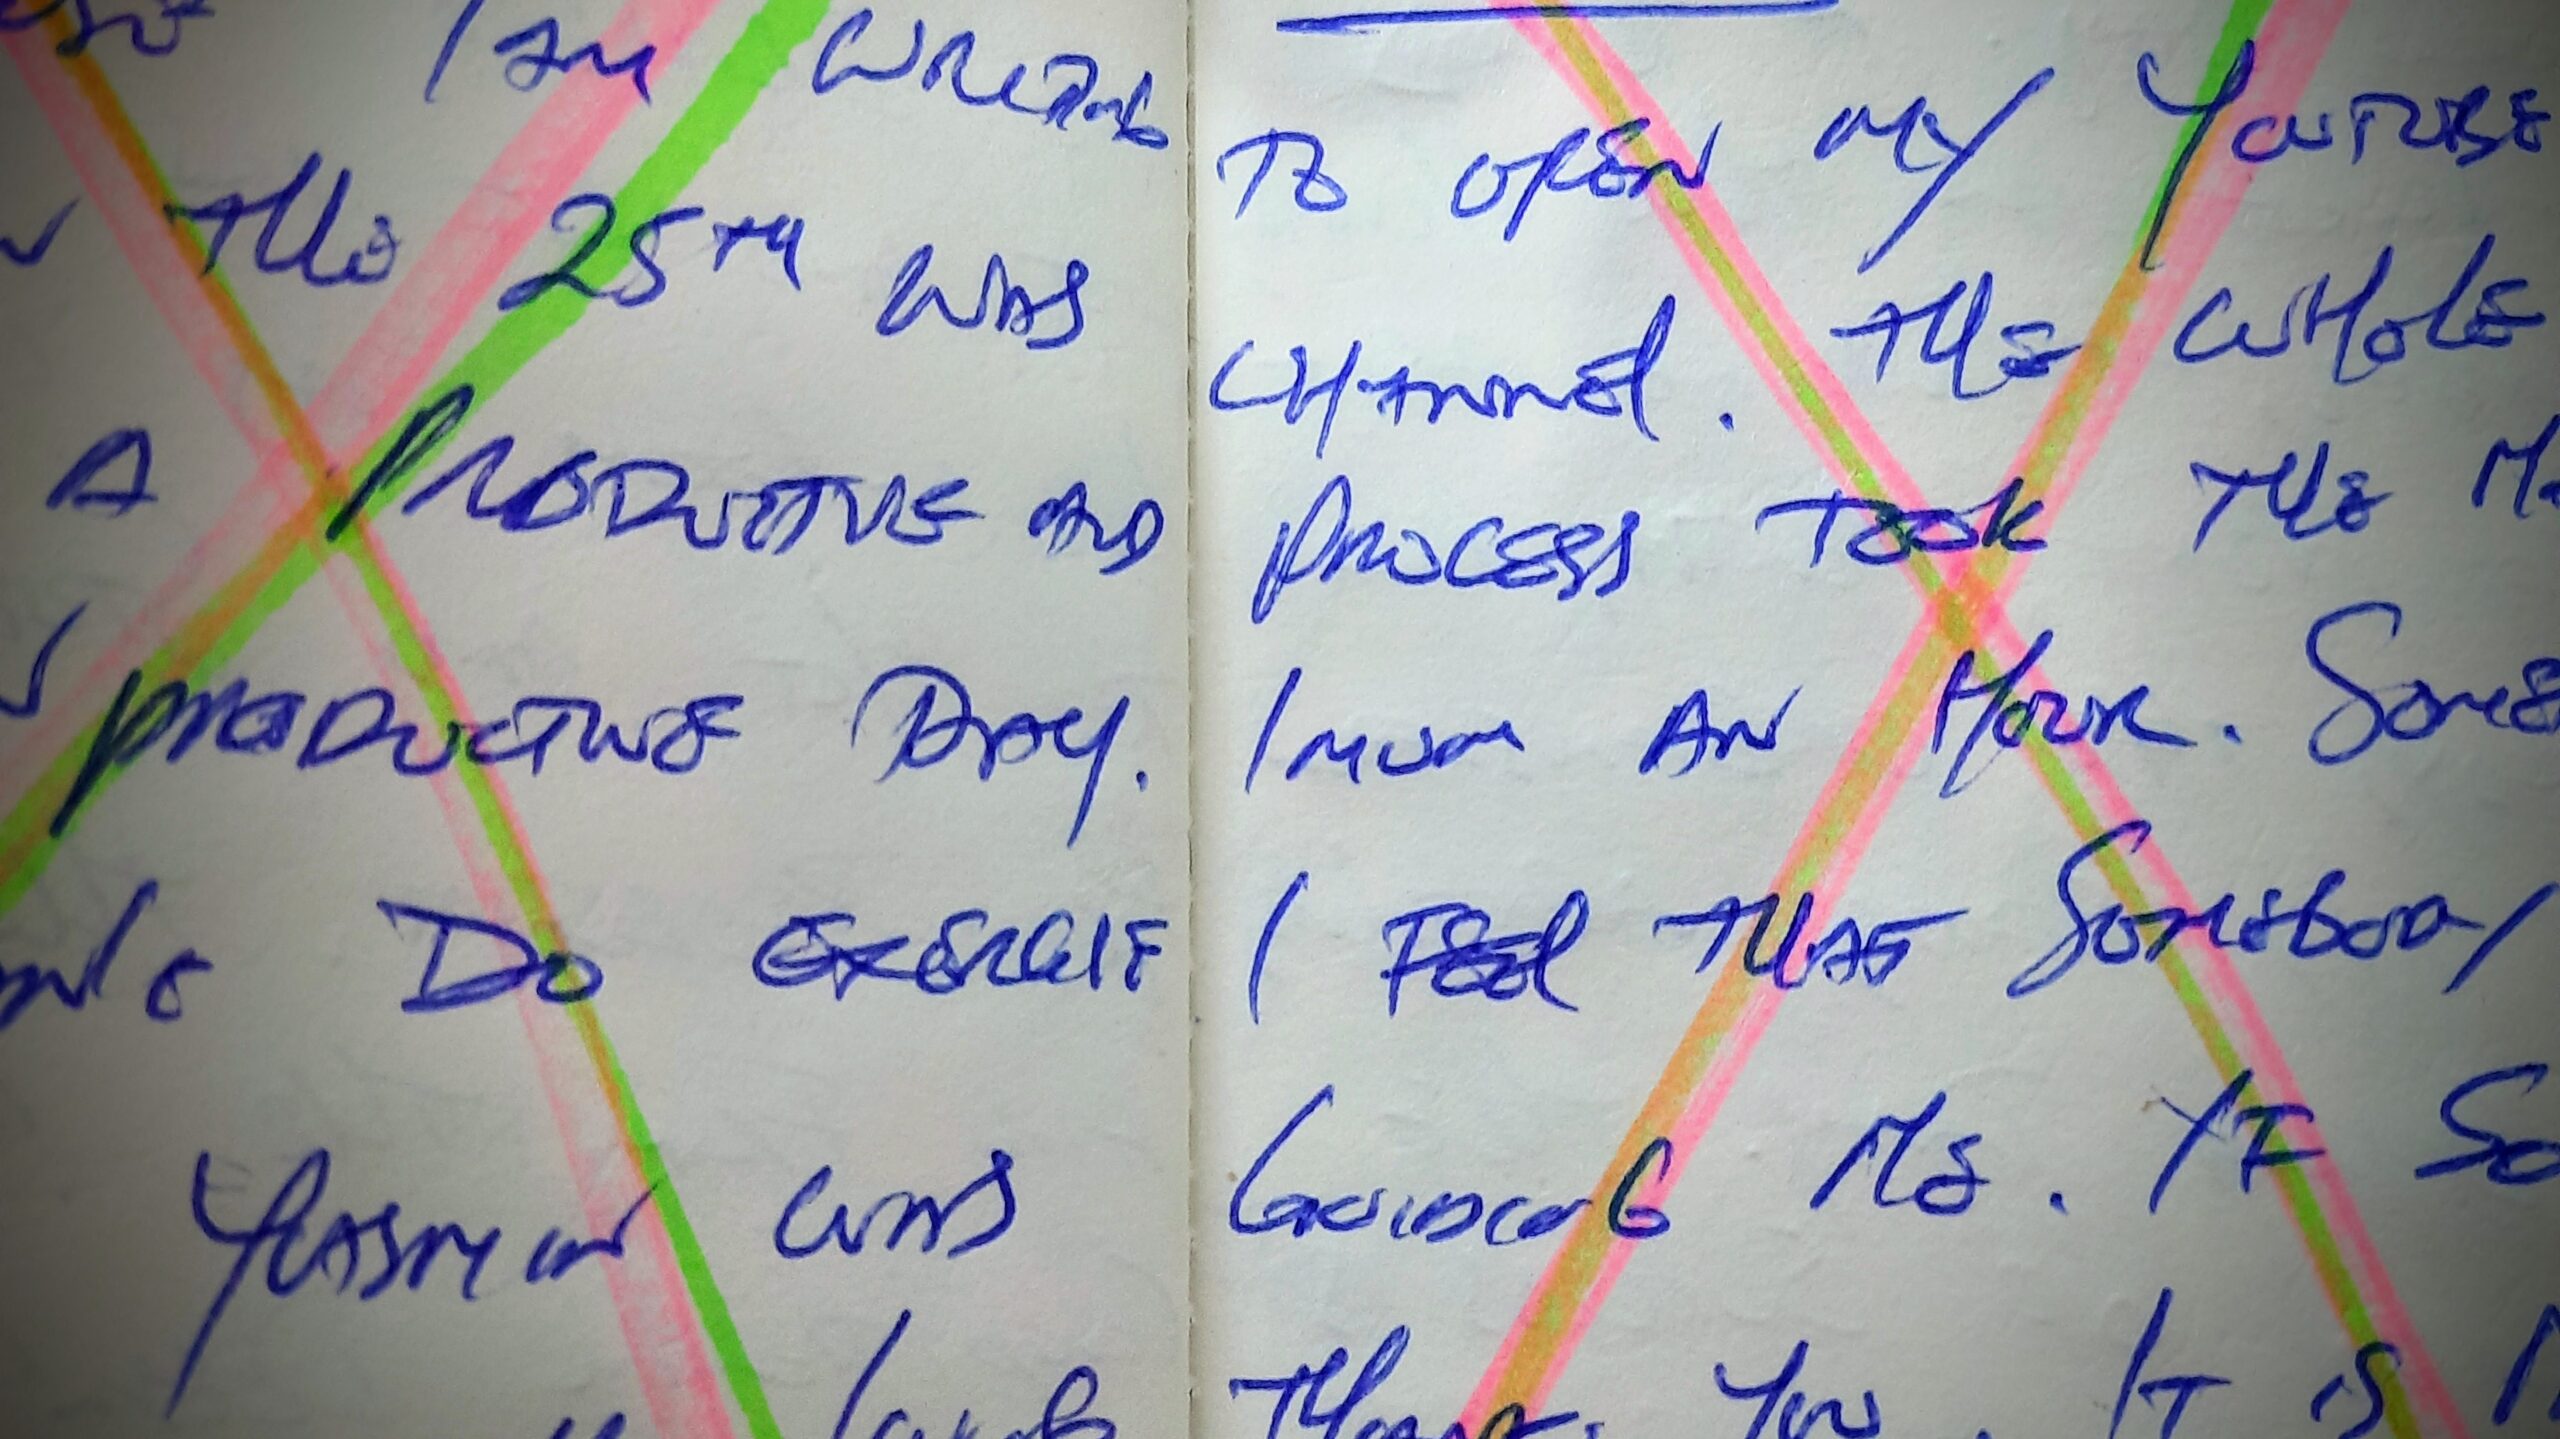 I AM WRITING
THE 25TH WAS
A PRODUCTIVE AND
PRODUCTIVE DAY.
DO EXERCISE
YEASMIN WAS
TO OPEN MY YOUTUBE
CHANNEL. THE WHOLE
PROCESS TOOK THE MA
IMUM AN HOUR. SOME
I FEEL THAT SOMEBODY
GUIDING ME. IF SO
THANK YOU. IT IS